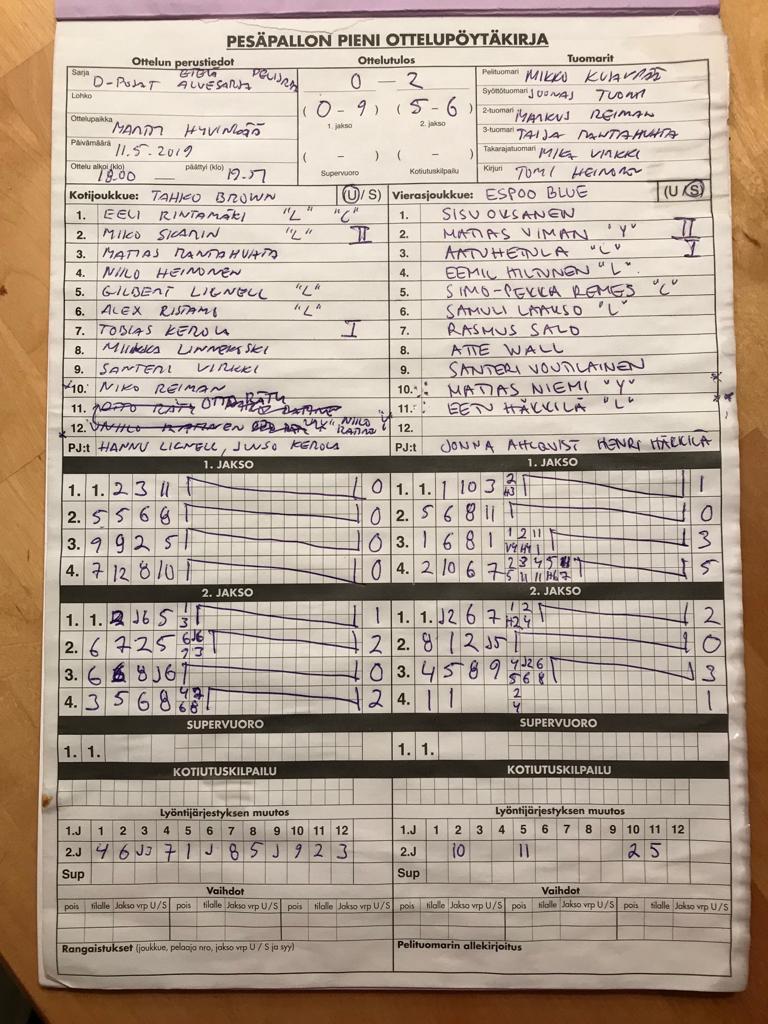 PESÄPALLON PIENI OTTELUPÖYTÄKIRJA
Ottelun perustiedot
Sarja D-POJAT ETELÄ ALUESARJA
Lohko
Ottelupaikka MARTTI HYVINKÄÄ
Päivämäärä 11.5.2019
Ottelu alkoi (klo) 18.00 — päättyi (klo) 19.51
Ottelutulos
0 — 2
(0 – 9) (5 – 6)
1. jakso 2. jakso
( – ) ( – )
Supervuoro Kotiutuskilpailu
Tuomarit
Pelituomari MIKKO
Syöttötuomari JOONAS TUOMI
2-tuomari MARKUS REIMAN
3-tuomari TAIJA RANTAHUHTA
Takarajatuomari MIKA VIRKKI
Kirjuri TOMI HEINONEN
Kotijoukkue: TAHKO BROWN (U / S)
1. EELI RINTAMÄKI "L" "C"
2. MIKO SKARIN "L" II
3. MATIAS RANTAHUHTA
4. NIILO HEINONEN
5. GILBERT LIGNELL "L"
6. ALEX RISTAMI "L"
7. TOBIAS KEROLA I
8. MIIKKA
9. SANTERI VIRKKI
10. NIKO REIMAN
11. OTTO RÄTY
12. NIILO
PJ:t HANNU LIGNELL, JUSSO KEROLA
Vierasjoukkue: ESPOO BLUE (U / S)
1. SISU OKSANEN
2. MATIAS VIMAN "Y" II
3. AATU HETULA "L" I
4. EEMIL HILTUNEN "L"
5. SIMO-PEKKA REMES "C"
6. SAMULI LAAKSO "L"
7. RASMUS SALO
8. ATTE WALL
9. SANTERI VOUTILAINEN
10. MATIAS NIEMI "Y"
11. EETU HÄKKILÄ "L"
12.
PJ:t JONNA AHLQVIST HENRI HÄKKILÄ
1. JAKSO
1. 1. 2 3 11 0
2. 5 5 6 8 0
3. 9 9 2 5 0
4. 7 12 8 10 0
1. JAKSO
1. 1. 1 10 3 2 H3 1
2. 5 6 8 11 0
3. 1 6 8 1 1 2 11 3
4. 2 10 6 7 2 3 4 5 5
2. JAKSO
1. 1. 2 J6 5 1 3 1
2. 6 7 2 5 6 J6 7 3 2
3. 6 6 8 J6 0
4. 3 5 6 8 4 7 6 8 2
2. JAKSO
1. 1. J2 6 7 1 2 H2 4 2
2. 8 1 2 J5 0
3. 4 5 8 9 4 J2 6 5 6 8 3
4. 1 1 2 4 1
SUPERVUORO
1. 1.
SUPERVUORO
1. 1.
KOTIUTUSKILPAILU
KOTIUTUSKILPAILU
Lyöntijärjestyksen muutos
1.J 1 2 3 4 5 6 7 8 9 10 11 12
2.J 4 6 JJ 7 1 J 8 5 J 9 2 3
Sup
Lyöntijärjestyksen muutos
1.J 1 2 3 4 5 6 7 8 9 10 11 12
2.J 10 11 2 5
Sup
Vaihdot
pois tilalle Jakso vrp U / S pois tilalle Jakso vrp U / S pois tilalle Jakso vrp U / S
Vaihdot
pois tilalle Jakso vrp U / S pois tilalle Jakso vrp U / S pois tilalle Jakso vrp U / S
Rangaistukset (joukkue, pelaaja nro, jakso vrp U / S ja syy)
Pelituomarin allekirjoitus